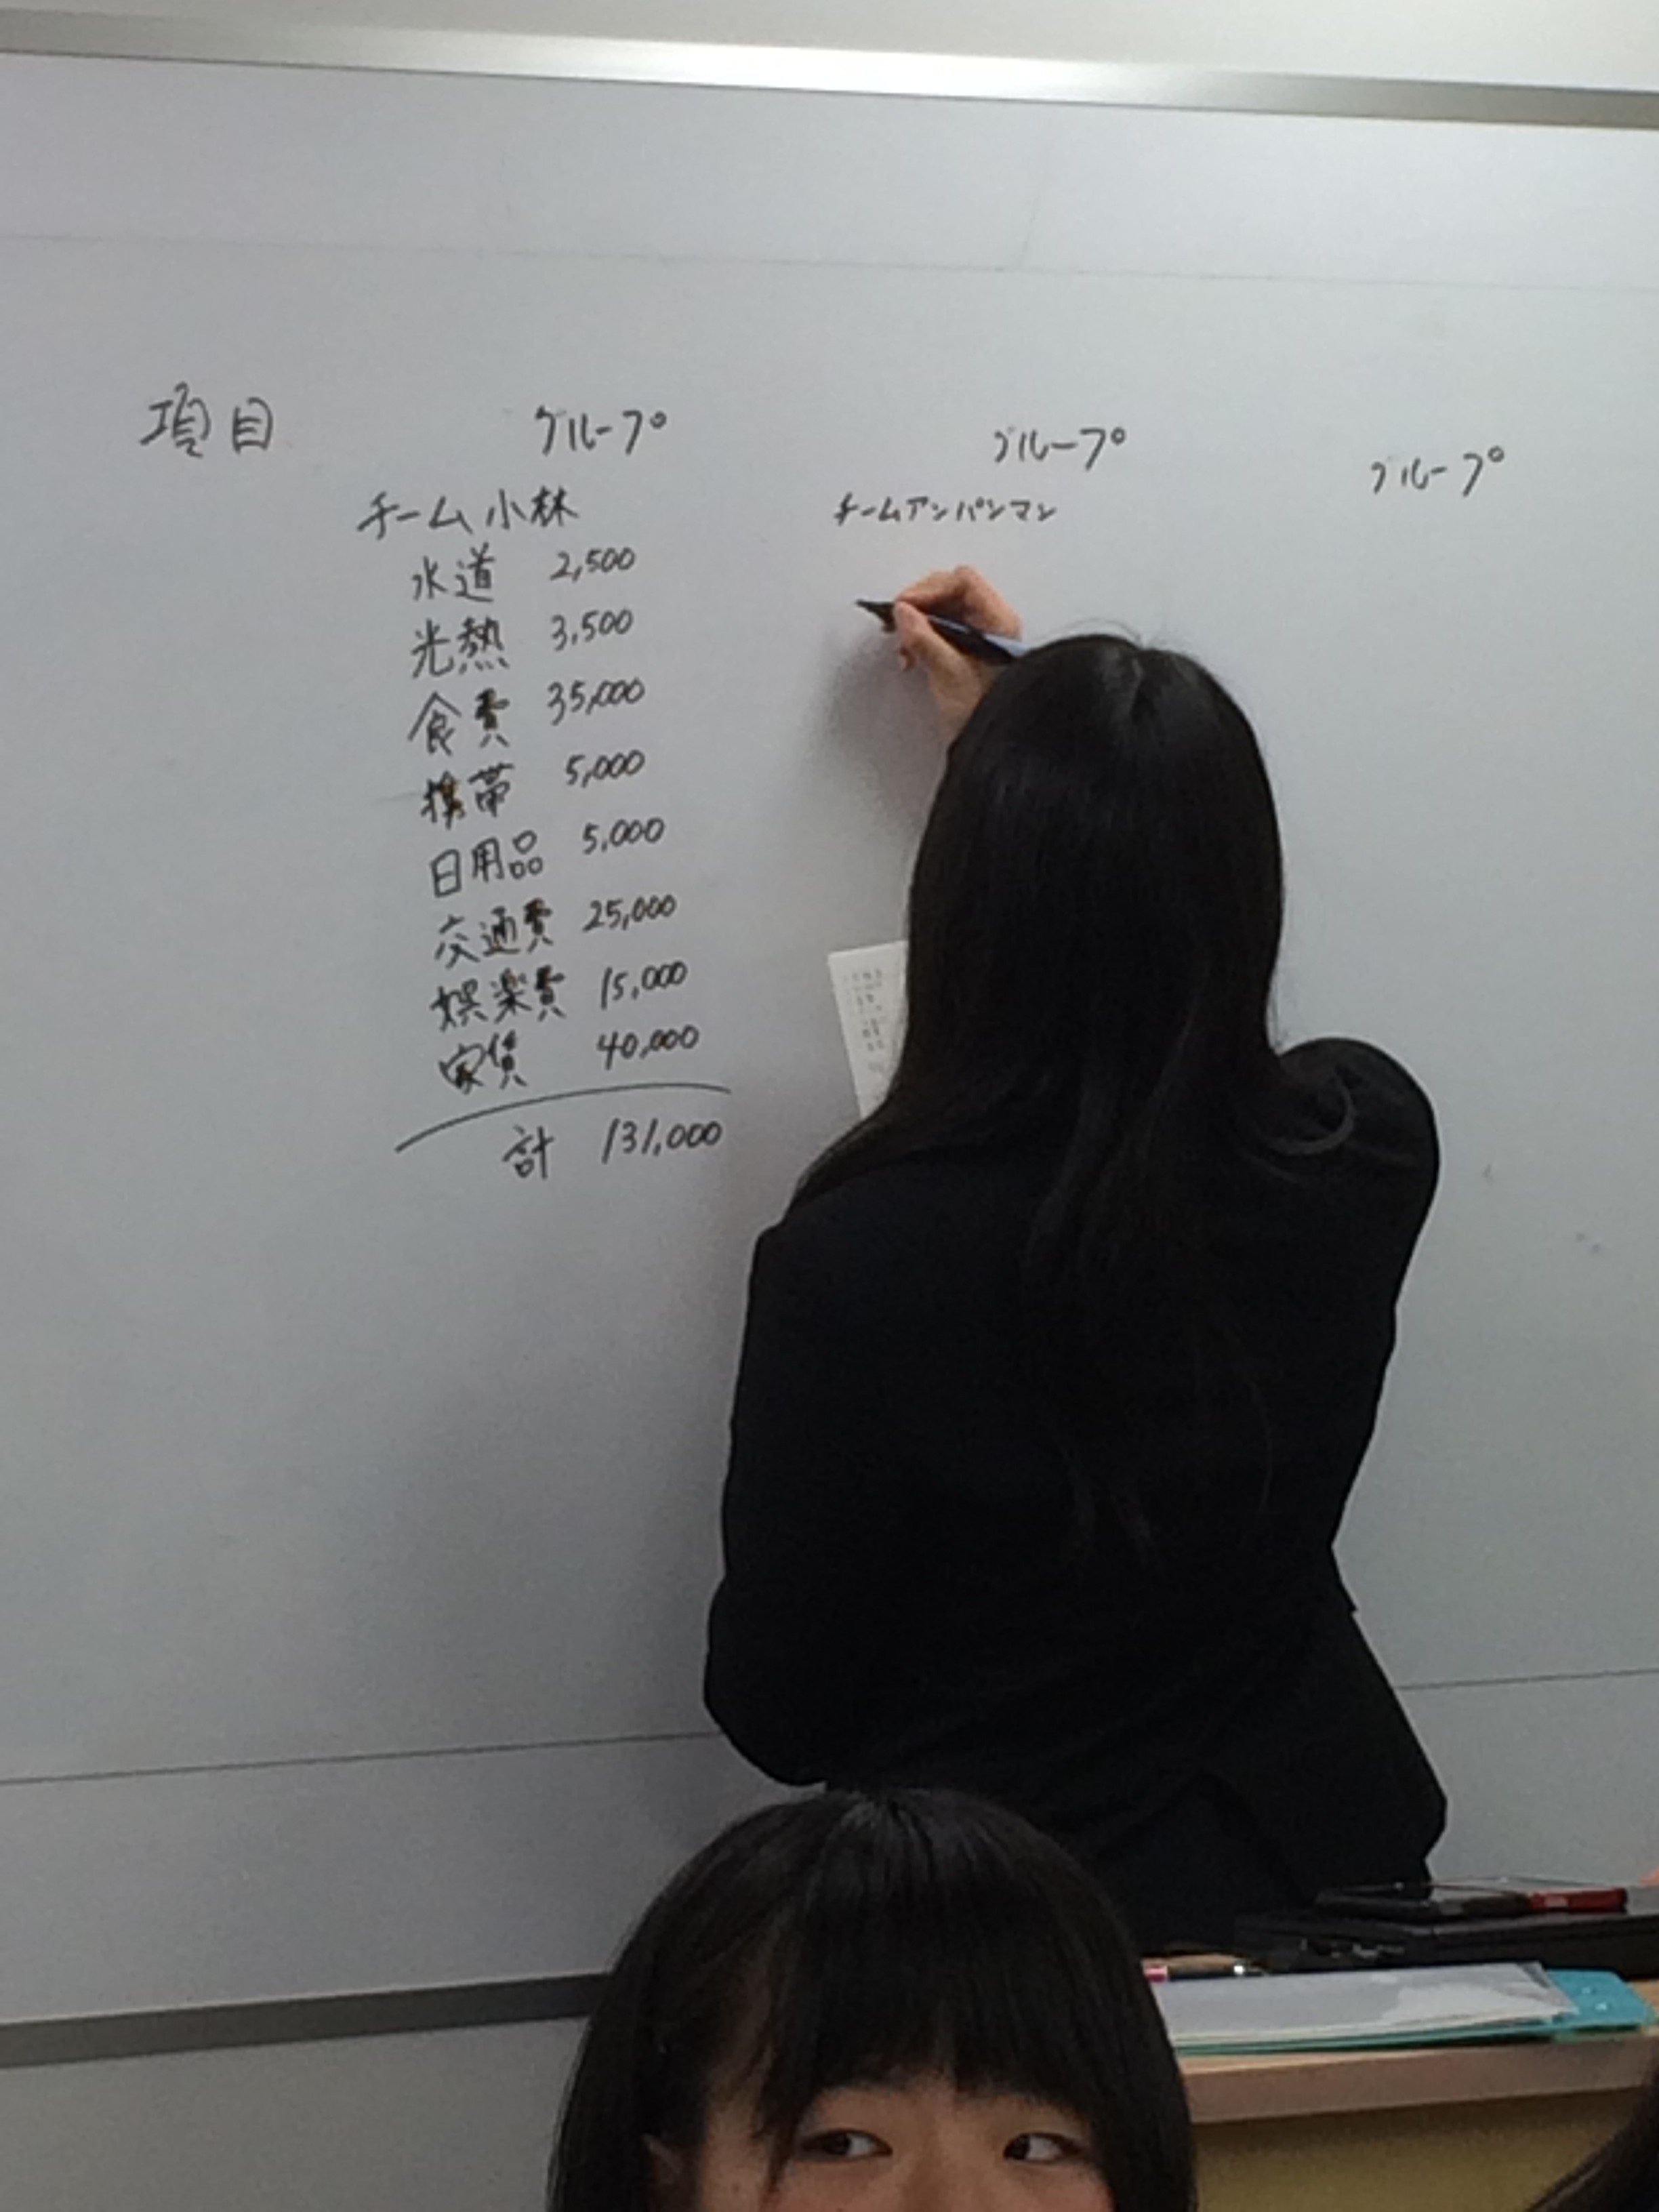 項目 グループ グループ グループ
チーム小林 チームアンパンマン
水道 2,500
光熱 3,500
食費 35,000
携帯 5,000
日用品 5,000
交通費 25,000
娯楽費 15,000
家賃 40,000
計 131,000